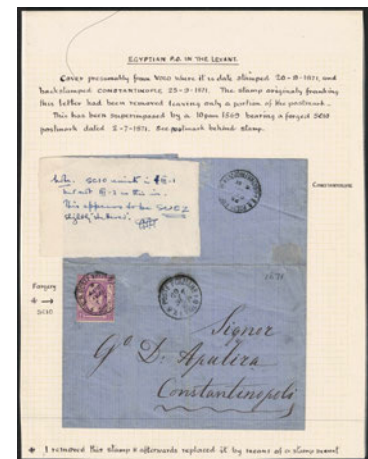 EGYPTIAN P.O. IN THE LEVANT.
COVER presumably from VOLO where it is date stamped 20-8-1871, and
backstamped CONSTANTINOPLE 23-9-1871. The stamp originally franking
this letter had been removed leaving only a portion of the postmark.
This has been superimposed by a 10para 1869 bearing a forged SCIO
postmark dated 2-7-1871. See postmark behind stamp.
Note. SCIO exists in
but not
This appears to be SUEZ
slightly altered.
Constantinople
Forgery
SCIO
1871
Signor
Constantinopoli
* I removed this stamp & afterwards replaced it by means of a stamp mount